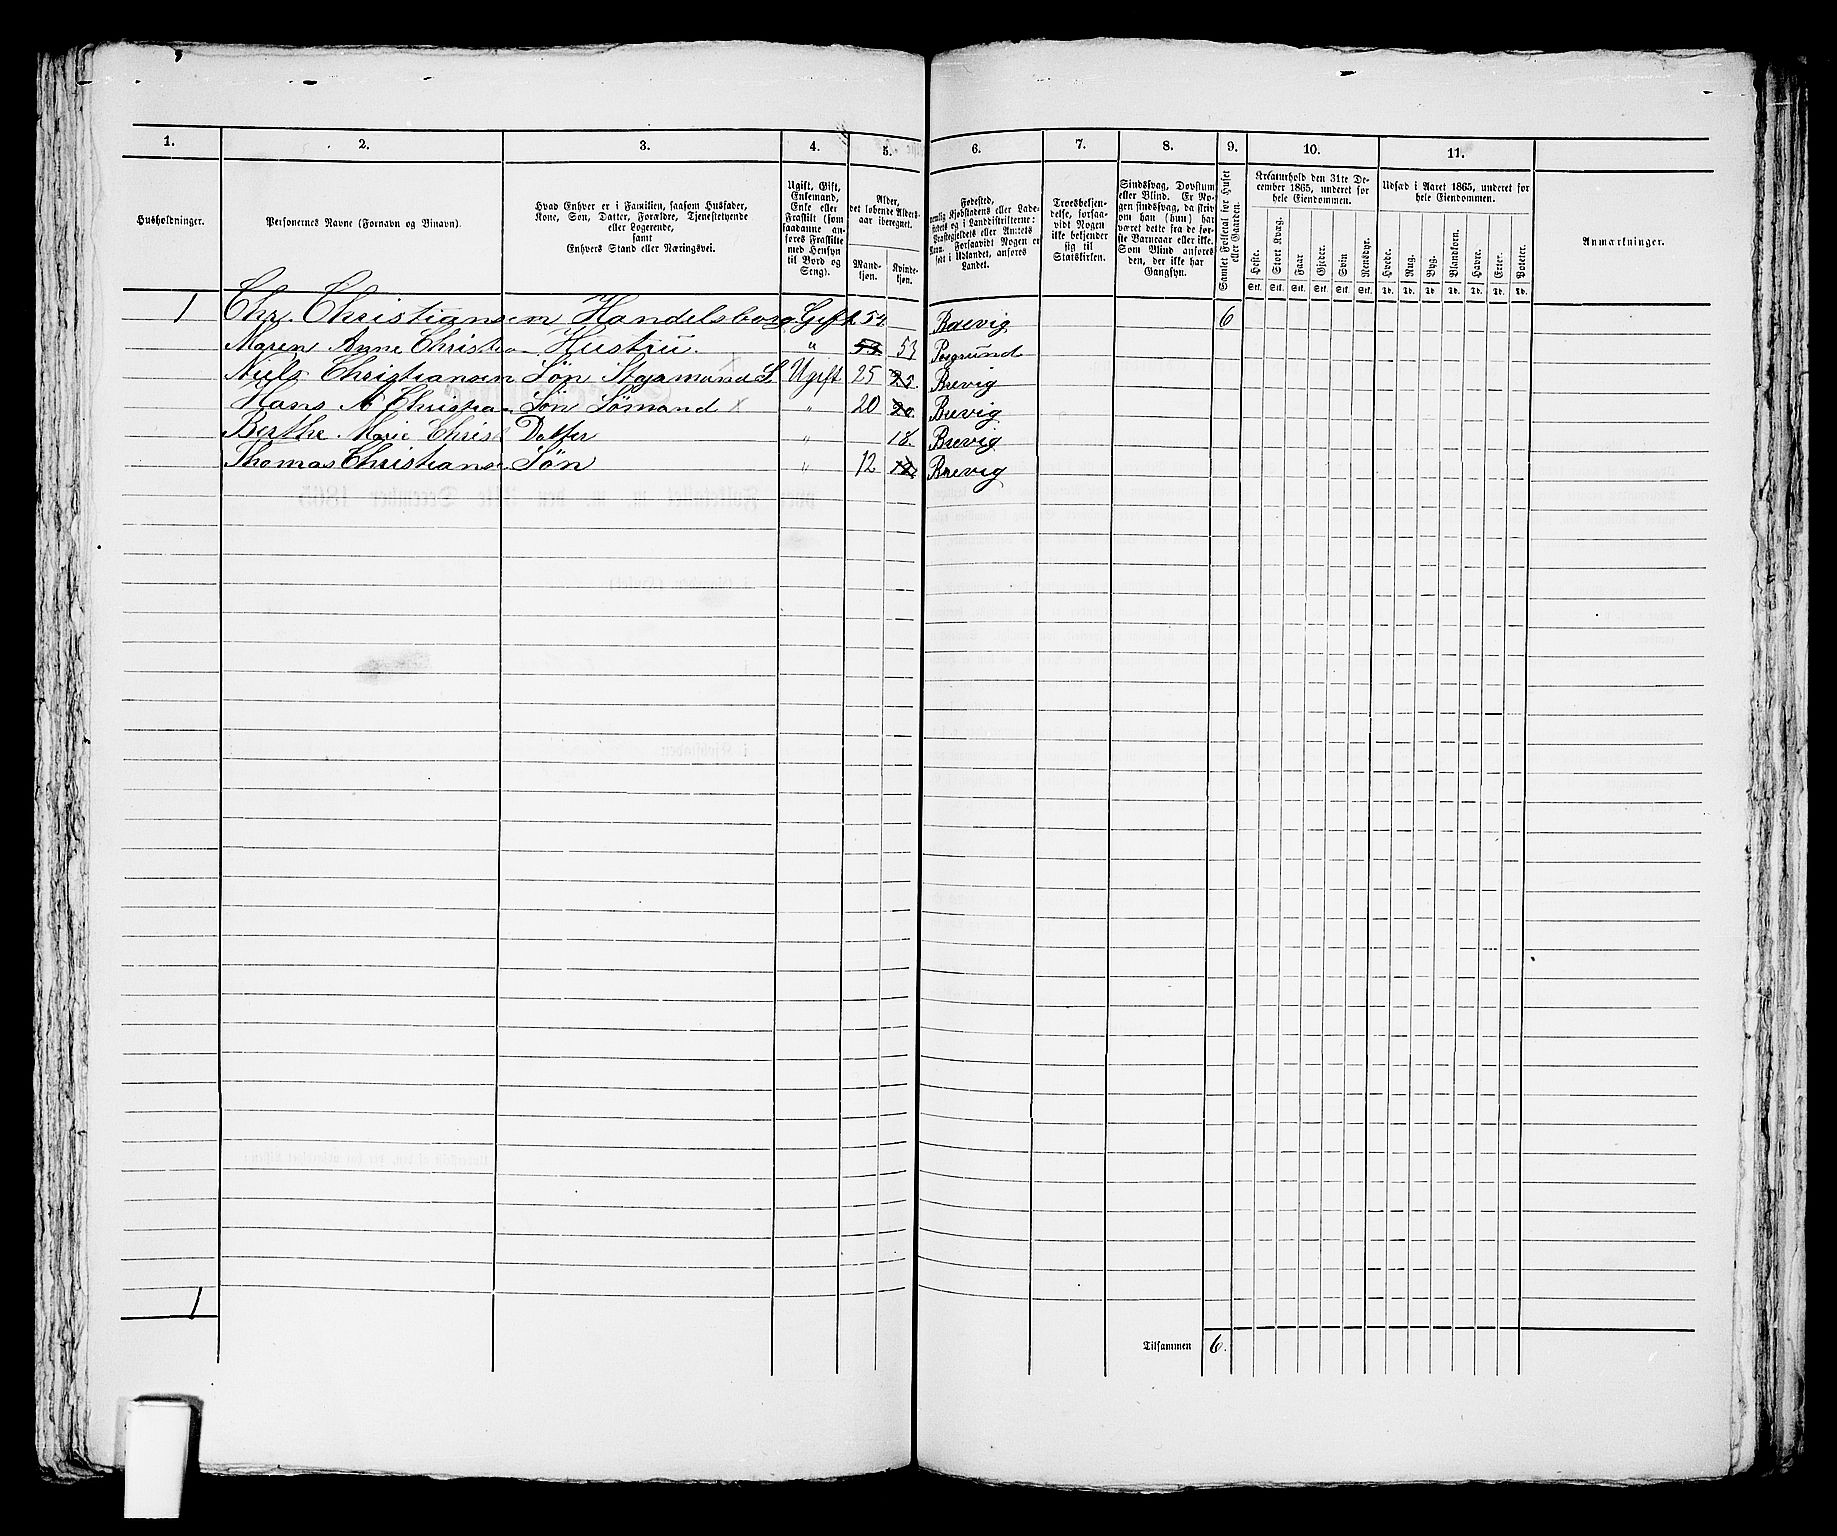 1. 2. 3. 4. 5. 6. 7. 8. 9. 10. 11.
Husholdninger.
Personernes Navne (Fornavn og Binavn).
Hvad Enhver er i Familien, saasom Husfader,
Kone, Søn, Datter, Forældre, Tjenestetyende
eller Logerende,
samt
Enhvers Stand eller Næringsvei.
Ugift, Gift,
Enkemand,
Enke eller
Fraskilt (som
saadanne an-
føres Fraskilte
med Hensyn
til Bord og
Seng).
Alder,
det løbende Alders-
aar iberegnet.
Mand-
kjøn.
Kvinde-
kjøn.
Fødested,
nemlig Kjøbstadens eller Lade-
stedets og i Landdistrikterne:
Præstegjeldets eller Amtets
Navn. Forsaavidt Nogen er
født i Udlandet, anføres
Landet.
Troesbekjen-
delse, forsaa-
vidt Nogen
ikke bekjender
sig til
Statskirken.
Sindssvag, Døvstum
eller Blind. Er No-
gen sindssvag, da skriv
om han (hun) har
været dette fra de før-
ste Barneaar eller ikke.
Som Blind anføres
den, der ikke har
Gangsyn.
Samlet Folketal for Huset
eller Gaarden.
Kreaturhold den 31te De-
cember 1865, underet for
hele Eiendommen.
Heste. Stort Kvæg. Faar. Gjeder. Svin. Rensdyr.
Stk. Stk. Stk. Stk. Stk. Stk.
Udsæd i Aaret 1865, underet for
hele Eiendommen.
Hvede. Rug. Byg. Blandkorn. Havre. Erter. Poteter.
Td. Td. Td. Td. Td. Td. Td.
Anmærkninger.
1 Chr. Christiansen Handelsborg Gift 54 Brevig 6
Maren Anne Christia Hustru. " 53 53 Porgrund
Niels Christiansen Søn Styrmand S. Ugift 25 25. Brevig
Hans N Christia Søn Sømand x " 20 20. Brevig
Berthe Marie Christ Datter " 18. Brevig
Thomas Christianse Søn " 12 12. Brevig
1
Tilsammen 6.